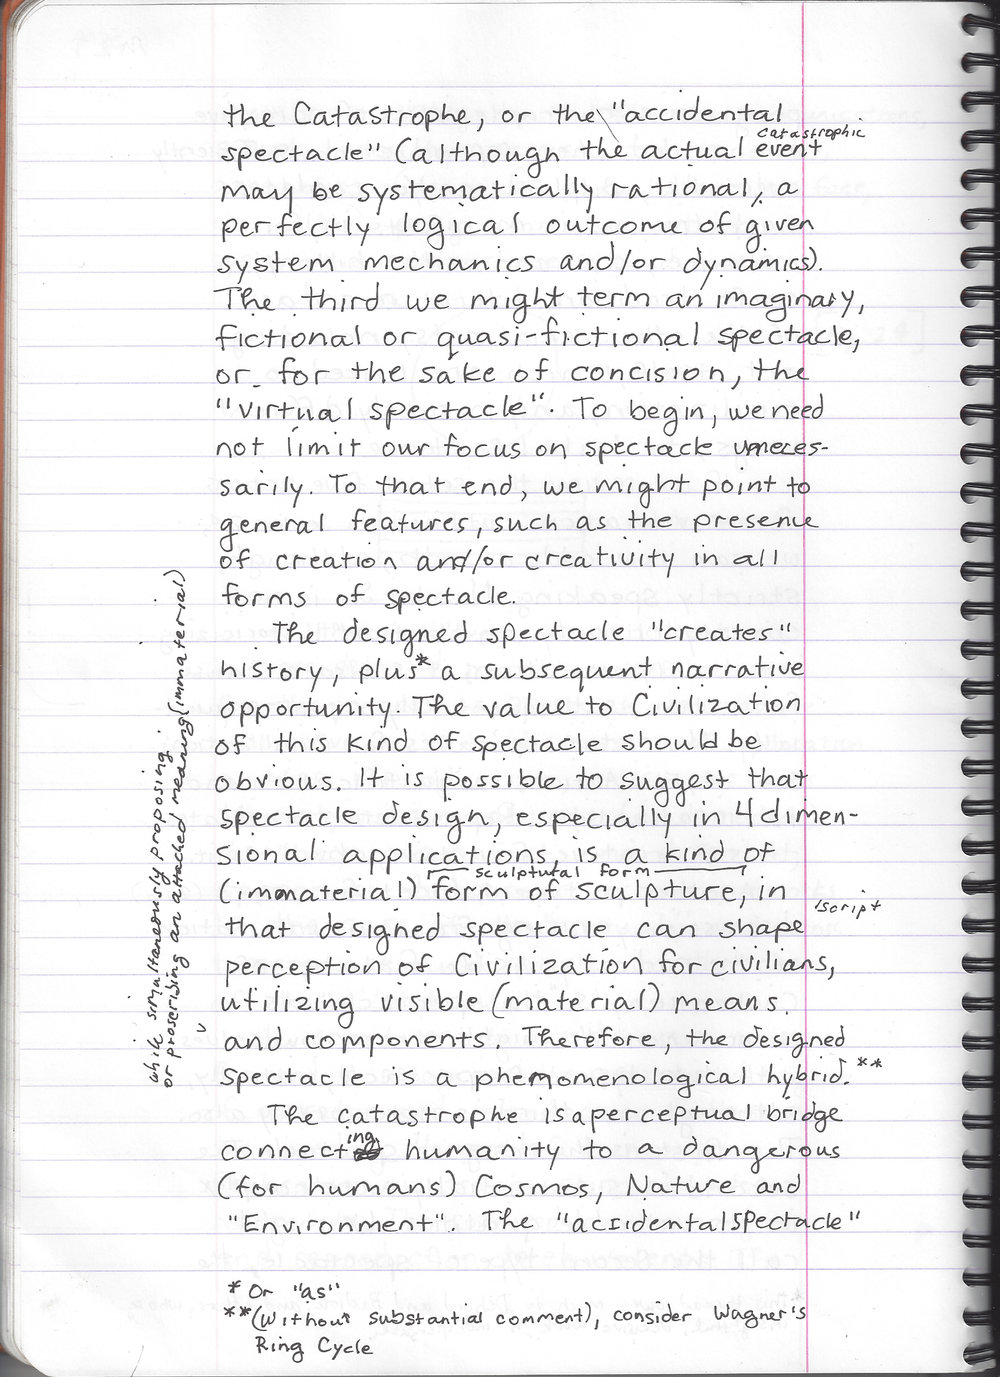 the Catastrophe, or the "accidental
catastrophic
spectacle" (although the actual event
may be systematically rational, a
perfectly logical outcome of given
system mechanics and/or dynamics).
The third we might term an imaginary,
fictional or quasi-fictional spectacle,
or for the sake of concision, the
"virtual spectacle". To begin, we need
not limit our focus on spectacle unneces-
sarily. To that end, we might point to
general features, such as the presence
of creation and/or creativity in all
forms of spectacle.
The designed spectacle "creates"
history, plus* a subsequent narrative
opportunity. The value to Civilization
of this kind of spectacle should be
obvious. It is possible to suggest that
spectacle design, especially in 4 dimen-
sional applications, is a kind of
sculptural form
(immaterial) form of sculpture, in
script
that designed spectacle can shape
perception of Civilization for civilians,
utilizing visible (material) means
and components. Therefore, the designed
spectacle is a phenomenological hybrid.**
The catastrophe is a perceptual bridge
connecting humanity to a dangerous
(for humans) Cosmos, Nature and
"Environment". The "accidental spectacle"
while simultaneously proposing
or proscribing an attached meaning (immaterial)
* Or "as"
**(Without substantial comment), consider Wagner's
Ring Cycle